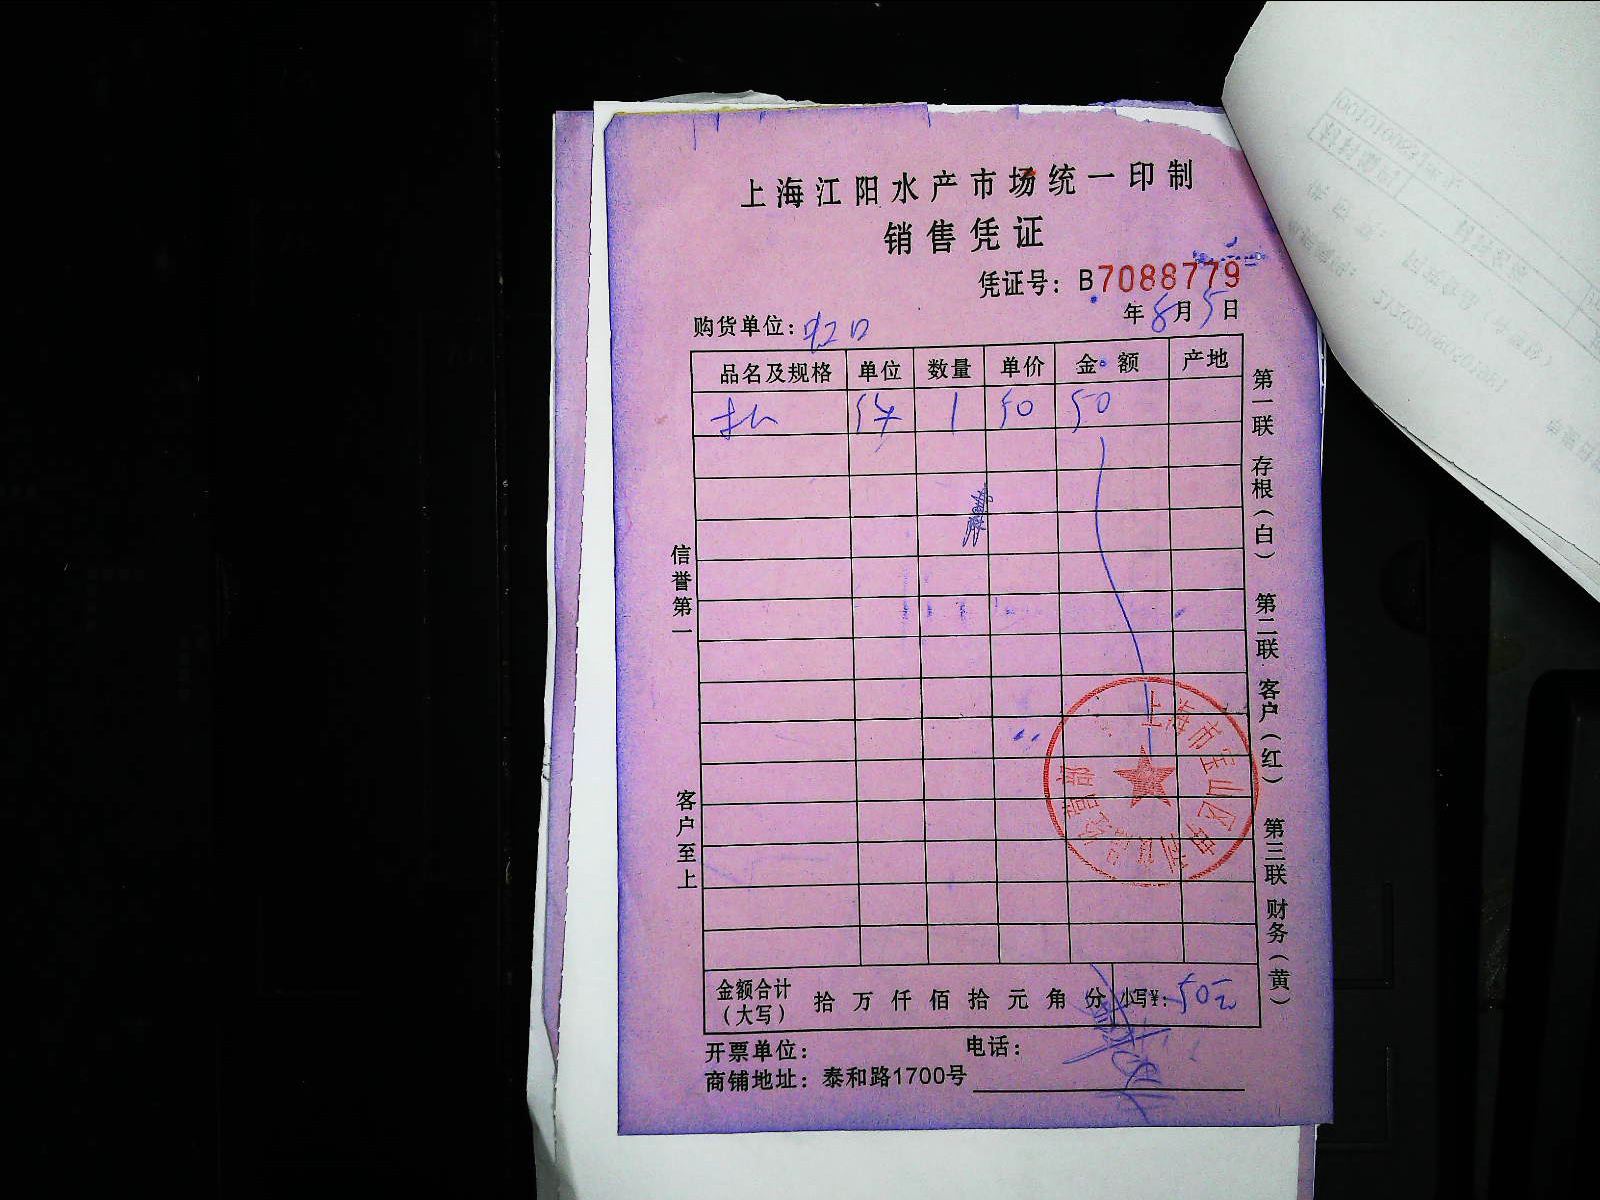 上海江阳水产市场统一印制
销售凭证
凭证号：B7088779
年8月5日
购货单位：虹口
品名及规格 单位 数量 单价 金额 产地
1 50 50
信誉第一
客户至上
第一联 存根（白） 第二联 客户（红） 第三联 财务（黄）
上海市宝山区
金额合计（大写） 拾 万 仟 佰 拾 元 角 分 小写¥：50元
开票单位： 电话：
商铺地址：泰和路1700号